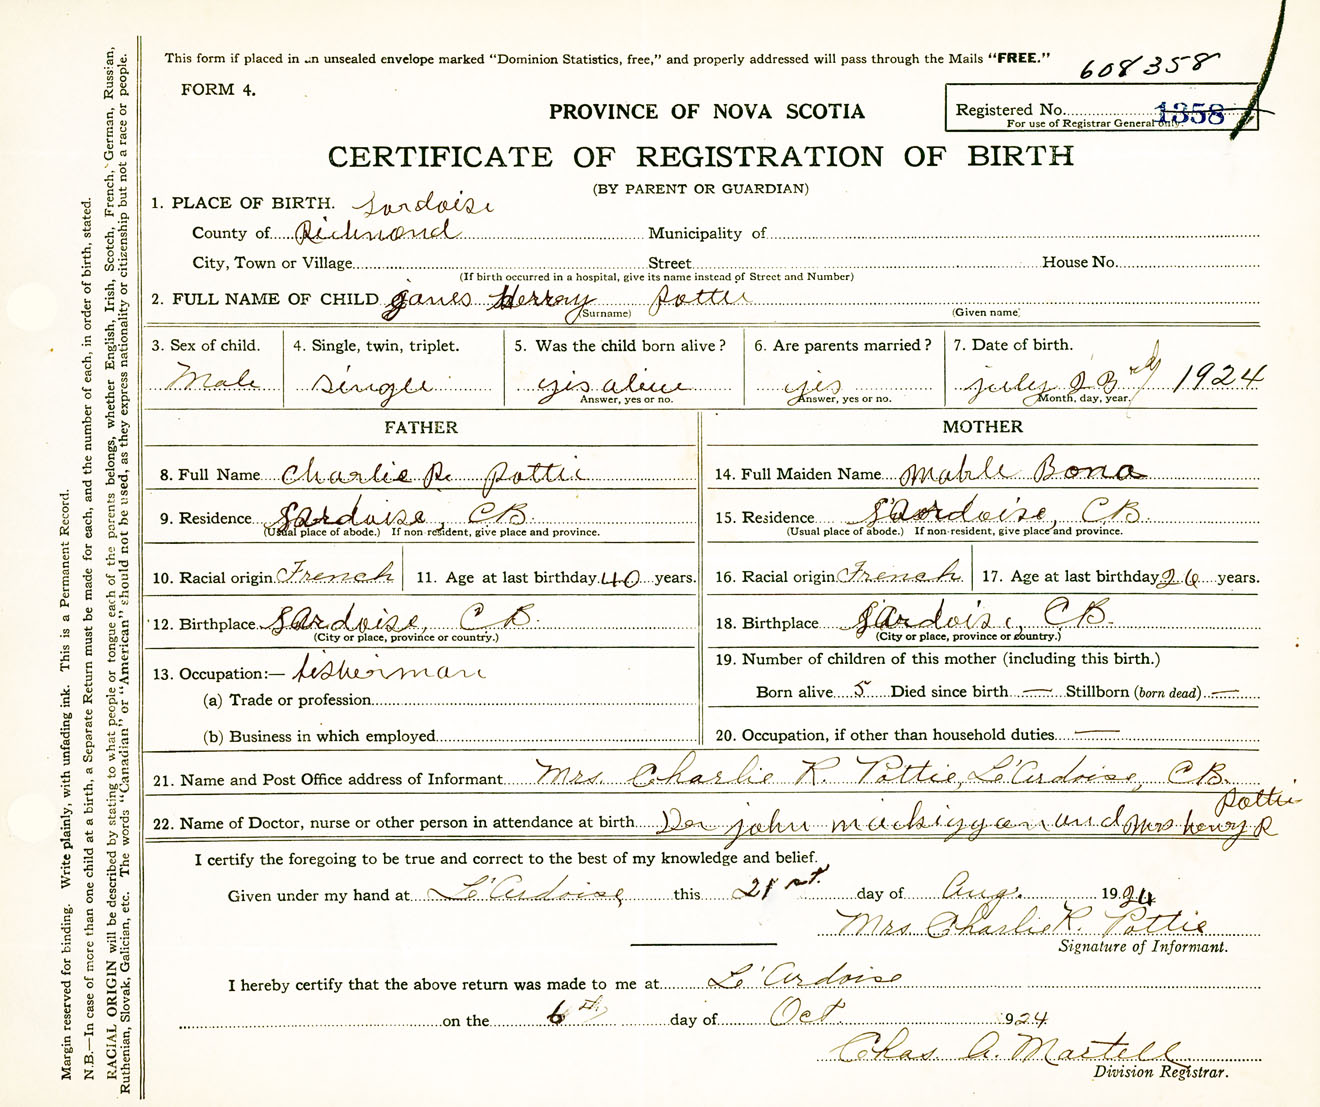 This form if placed in an unsealed envelope marked "Dominion Statistics, free," and properly addressed will pass through the Mails "FREE."
608358
FORM 4.
PROVINCE OF NOVA SCOTIA
Registered No. 1358
For use of Registrar General only.
CERTIFICATE OF REGISTRATION OF BIRTH
(BY PARENT OR GUARDIAN)
1. PLACE OF BIRTH. Lardoise
County of Richmond Municipality of
City, Town or Village Street House No.
(If birth occurred in a hospital, give its name instead of Street and Number)
2. FULL NAME OF CHILD James Herray Pottie
(Surname) (Given name)
3. Sex of child. 4. Single, twin, triplet. 5. Was the child born alive? 6. Are parents married? 7. Date of birth.
Male Single yis alive yis july 23rd 1924
Answer, yes or no. Answer, yes or no. Month, day, year.
FATHER MOTHER
8. Full Name Charlie R. Pottie 14. Full Maiden Name Mable Bona
9. Residence L'Ardoise, CB. 15. Residence L'Ardoise, CB.
(Usual place of abode.) If non-resident, give place and province. (Usual place of abode.) If non-resident, give place and province.
10. Racial origin French 11. Age at last birthday 40 years. 16. Racial origin French 17. Age at last birthday 26 years.
12. Birthplace L'Ardoise, CB. 18. Birthplace L'Ardoise, CB.
(City or place, province or country.) (City or place, province or country.)
13. Occupation:— fisherman 19. Number of children of this mother (including this birth.)
(a) Trade or profession Born alive 5 Died since birth — Stillborn (born dead) —
(b) Business in which employed 20. Occupation, if other than household duties —
21. Name and Post Office address of Informant Mrs. Charlie R. Pottie, L'Ardoise, CB.
22. Name of Doctor, nurse or other person in attendance at birth john mackiggan and Mrs henry R Pottie
I certify the foregoing to be true and correct to the best of my knowledge and belief.
Given under my hand at L'Ardoise, this 21st. day of Aug. 1924
Mrs. Charlie R. Pottie
Signature of Informant.
I hereby certify that the above return was made to me at L'Ardoise
on the 6th day of Oct. 1924
Chas. A. Martell
Division Registrar.
Margin reserved for binding. Write plainly, with unfading ink. This is a Permanent Record.
N.B.—In case of more than one child at a birth, a Separate Return must be made for each, and the number of each, in order of birth, stated.
RACIAL ORIGIN will be described by stating to what people or tongue each of the parents belongs, whether English, Irish, Scotch, French, German, Russian,
Ruthenian, Slovak, Galician, etc. The words "Canadian" or "American" should not be used, as they express nationality or citizenship but not a race or people.